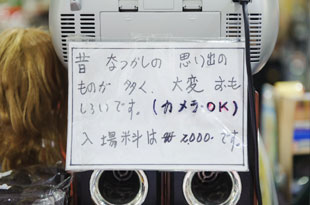 昔 なつかしの 思い出の
ものが 多く、大変 おも
しろいです。(カメラ・OK)
入場料は ¥2,000-です。